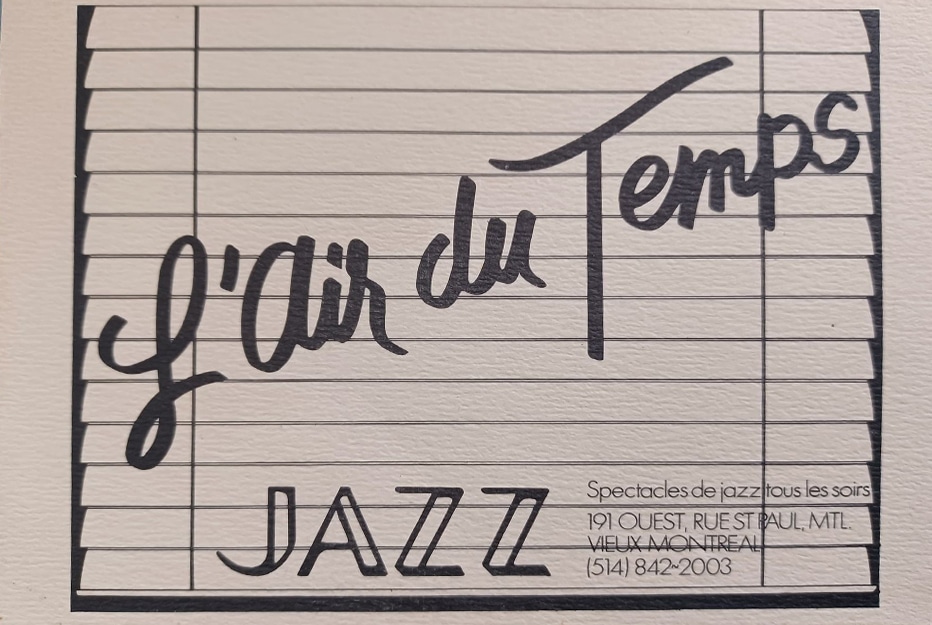 L'Air du Temps
JAZZ
Spectacles de jazz tous les soirs
191 OUEST, RUE ST PAUL, MTL.
VIEUX MONTREAL
(514) 842-2003